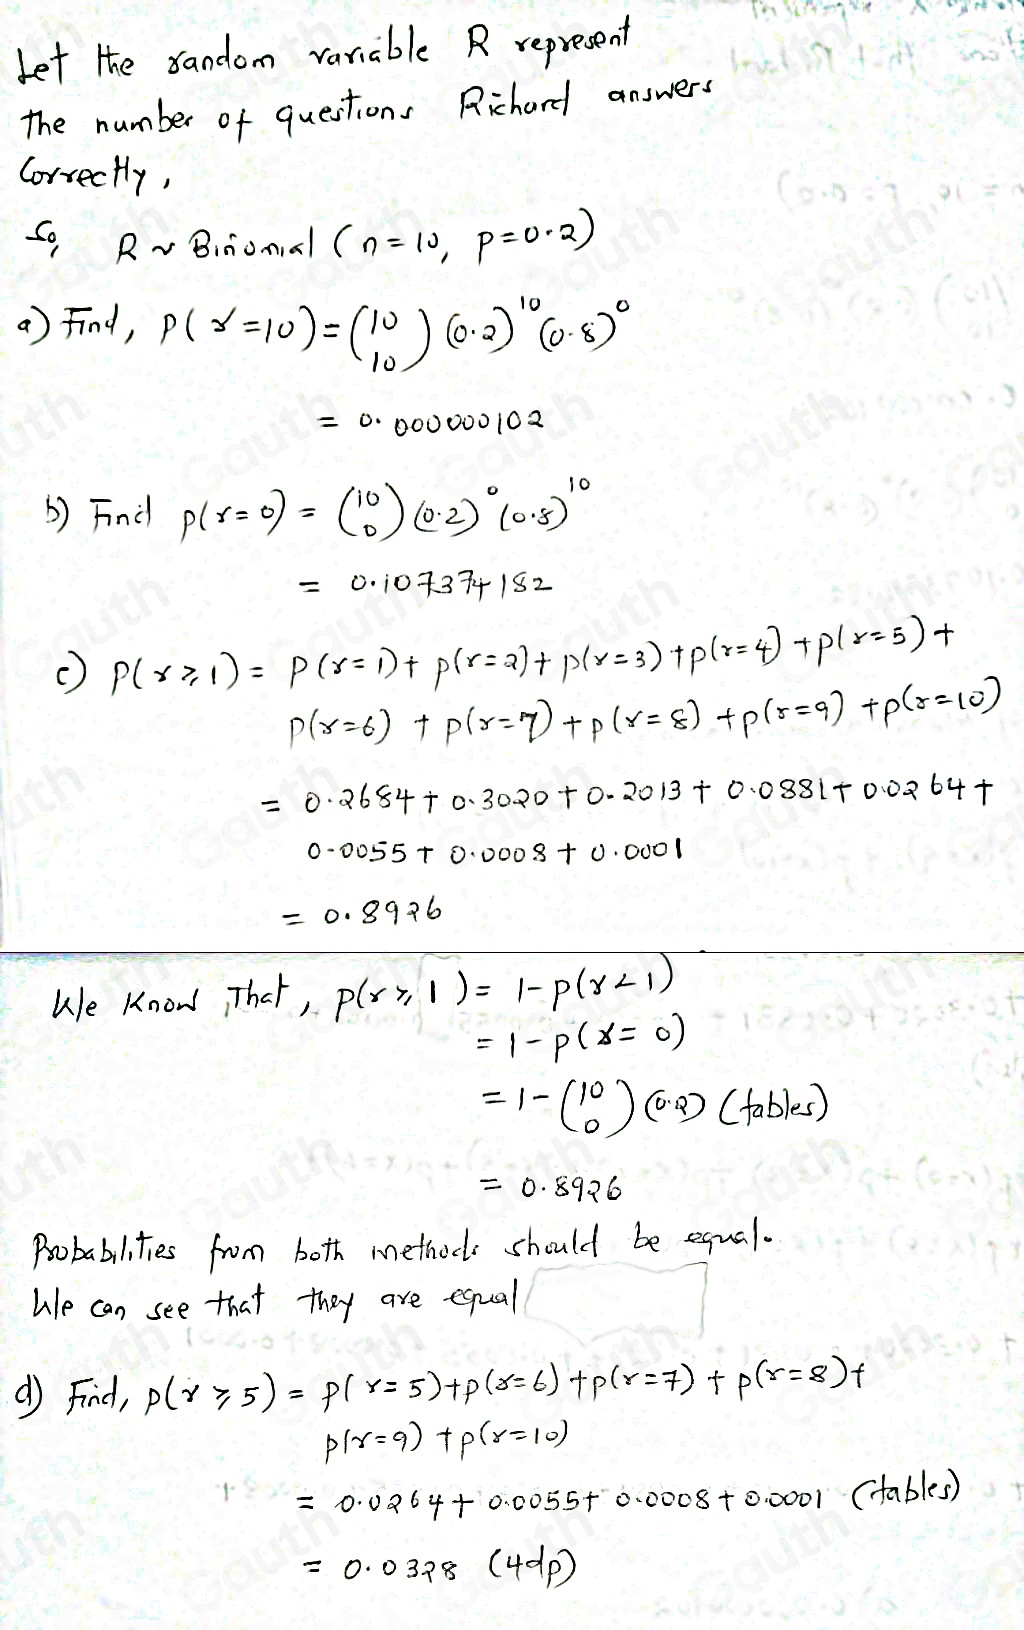 Let the random variable R represent
the number of questions Richard answers
Correctly,
So, R ~ Binomial (n=10, p=0.2)
a) Find, P(r=10) = (10 10) (0.2)^10 (0.8)^0
= 0.000000102
b) Find p(r=0) = (10 0) (0.2)^0 (0.8)^10
= 0.107374182
c) P(r⩾1) = P(r=1)+ p(r=2)+ p(r=3)+p(r=4)+p(r=5)+
P(r=6) + p(r=7)+p(r=8)+p(r=9)+p(r=10)
= 0.2684+0.3020+0.2013+0.0881+0.0264+
0.0055+0.0008+0.0001
= 0.8926
We Know That, p(r⩾1) = 1-p(r<1)
= 1-p(r=0)
= 1-(10 0) (0.2) (tables)
= 0.8926
Probabilities from both methods should be equal.
We can see that they are equal
d) Find, p(r⩾5) = p(r=5)+p(r=6)+p(r=7)+p(r=8)+
p(r=9)+p(r=10)
= 0.0264+0.0055+0.0008+0.0001 (tables)
= 0.0328 (4dp)